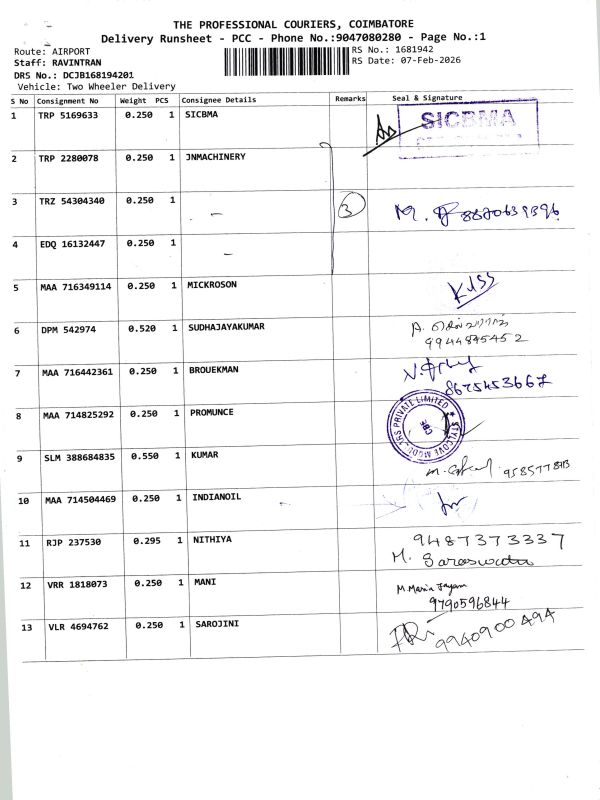 THE PROFESSIONAL COURIERS, COIMBATORE
Delivery Runsheet - PCC - Phone No.:9047080280 - Page No.:1
Route: AIRPORT
Staff: RAVINTRAN
DRS No.: DCJB168194201
Vehicle: Two Wheeler Delivery
RS No.: 1681942
RS Date: 07-Feb-2026
S No Consignment No Weight PCS Consignee Details Remarks Seal & Signature
1 TRP 5169633 0.250 1 SICBMA SICBMA
2 TRP 2280078 0.250 1 JNMACHINERY
3 TRZ 54304340 0.250 1 - 3 M. 8870639396
4 EDQ 16132447 0.250 1 -
5 MAA 716349114 0.250 1 MICKROSON
6 DPM 542974 0.520 1 SUDHAJAYAKUMAR A.
9944845452
7 MAA 716442361 0.250 1 BROUEKMAN
8675453667
8 MAA 714825292 0.250 1 PROMUNCE PRIVATE LIMITED CBE
9 SLM 388684835 0.550 1 KUMAR
10 MAA 714504469 0.250 1 INDIANOIL
11 RJP 237530 0.295 1 NITHIYA 9487373337
M. Saraswathi
12 VRR 1818073 0.250 1 MANI M. Maria Jayam
9790596844
13 VLR 4694762 0.250 1 SAROJINI 9940900494